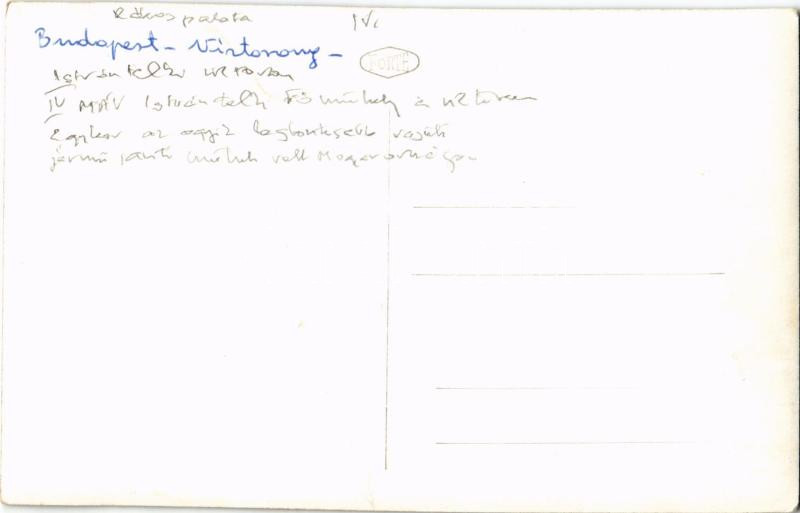 Rákospalota IV.
Budapest - Víztorony -
FORTE
Istvántelki víztorony
IV MÁV Istvántelki Főműhely a víztorony
Egykor az egyik legfontosabb vasúti
jármű javító műhely volt Magyarországon